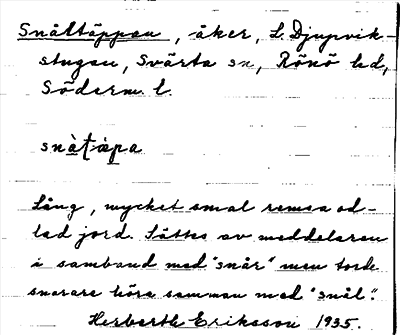 Snåltäppan, åker, L. Djupvik-
stugan, Svärta sn, Rönö hd,
Söderm. l.
snàtápa
Lång, mycket smal remsa od-
lad jord. Sättes av meddelaren
i samband med "snår" men torde
snarare höra samman med "snål".
Herbert Eriksson 1935.